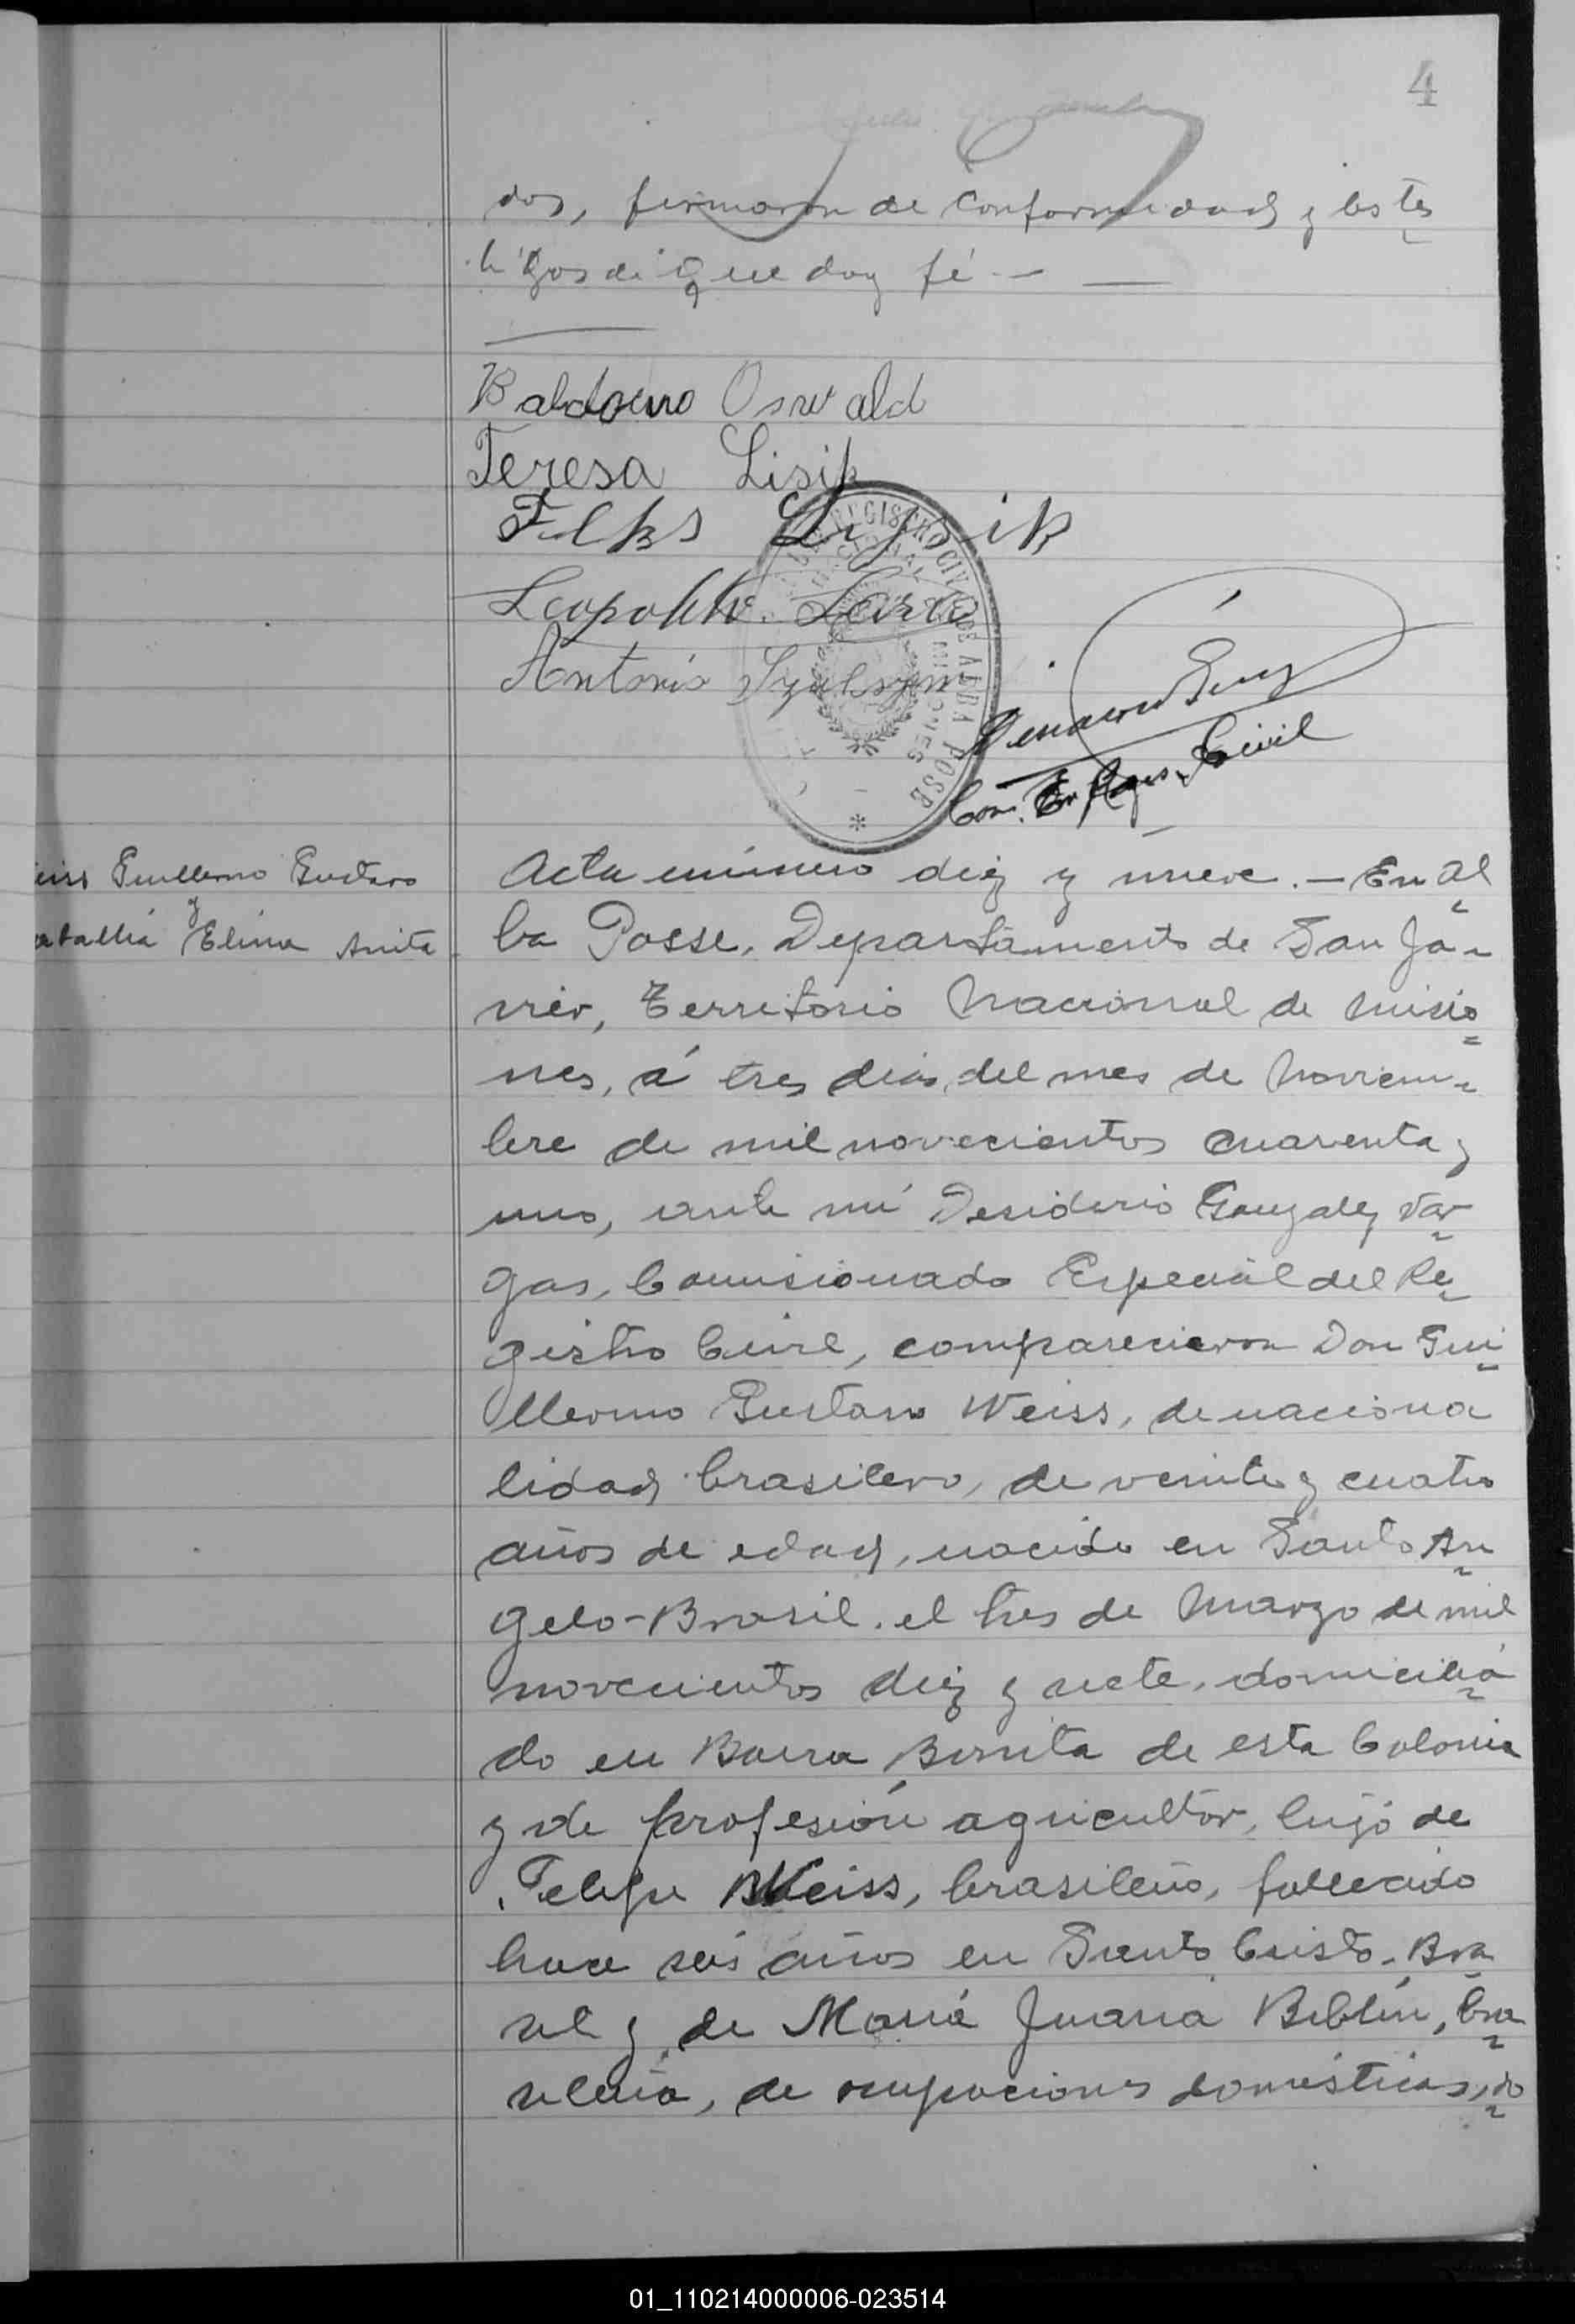 4
dos, firmaron de conformidad y los tes
tigos de que doy fé. —
Baldomero Oswald
Teresa Lisik
Felks Lysik
Leopoldo
Antonio
REGISTRO CIVIL DE ALBA POSSE
MISIONES
Com. Esp. Regis. Civil
eiss Guillermo Gustavo
y
Elina Anita
Acta número diez y nueve. — En Al
ba Posse, Departamento de San Ja-
vier, Territorio Nacional de Misio
nes, á tres dias del mes de Noviem-
bre de mil novecientos cuarenta y
uno, ante mi Desiderio Gonzalez Var
gas, Comisionado Especial del Re
gistro Civil, comparecieron Don Gui
llermo Gustavo Weiss, de naciona
lidad brasilero, de veinte y cuatro
años de edad, nacido en Santo An
gelo-Brasil. el tres de Marzo de mil
novecientos diez y siete, domicilia
do en Barra Bonita de esta Colonia
y de profesión agricultor, hijo de
Felipe Weiss, brasileño, fallecido
hace seis años en Santo Cristo. Bra
sil y de Maria Juana Biblin, bra
sileña, de ocupaciones domésticas, do
01_110214000006-023514